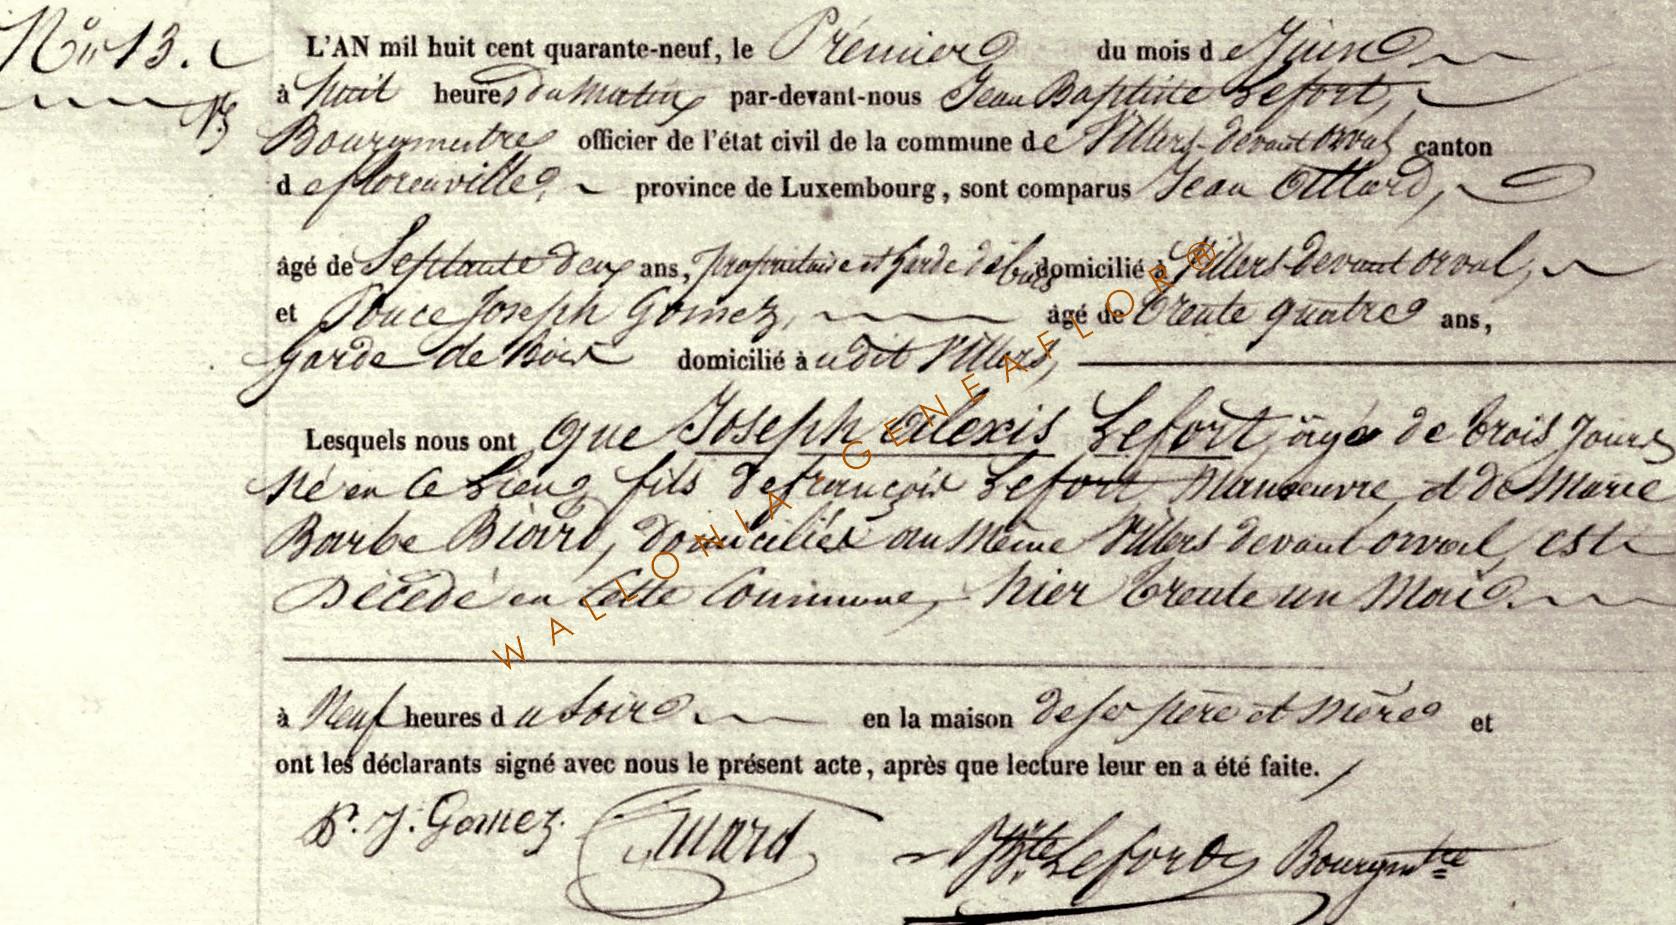 N° 13.
L'AN mil huit cent quarante-neuf, le Premier du mois de Juin
à huit heures du matin par-devant-nous Jean Baptiste Lefort,
Bourgmestre officier de l'état civil de la commune de Villers-devant orval canton
de florenville, province de Luxembourg, sont comparus Jean
âgé de Septante deux ans, propriétaire et garde de bois domicilié à Villers-devant orval,
et Ponce Joseph Gomez, âgé de trente quatre ans,
garde de Bois domicilié à udit Villers,
Lesquels nous ont que Joseph alexis Lefort, âgé de trois Jours
Né en ce Lieu, fils de françois Lefort Manœuvre, et de Marie
Barbe Biard, domiciliés au Même Villers devant orval, est
Décédé en Cette Commune, hier trente un Mai.
à Neuf heures du soir en la maison de ses père et mère et
ont les déclarants signé avec nous le présent acte, après que lecture leur en a été faite.
P. J. Gomez. JBte Lefort Bourgmtre
WALLONIA GENEAFLOR®